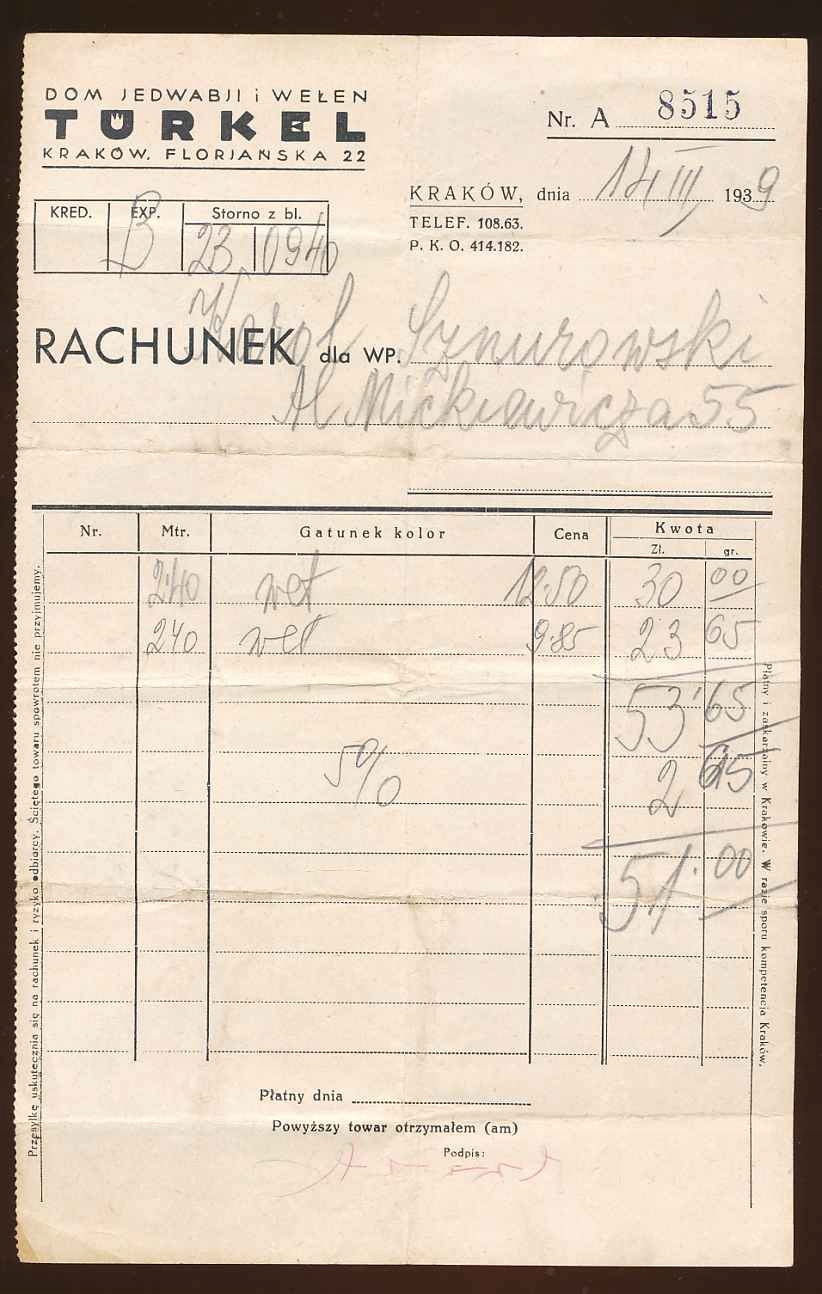 DOM JEDWABJI i WEŁEN
TÜRKEL
KRAKÓW, FLORJAŃSKA 22
Nr. A 8515
KRAKÓW, dnia 14 III 1939
TELEF. 108.63.
P. K. O. 414.182.
KRED. EXP. Storno z bl.
B 23 0940
Karol Sznurowski
RACHUNEK dla WP.
Al Mickiewicza 55
Nr. Mtr. Gatunek kolor Cena Kwota
Zł. gr.
2·40 weł 12·50 30 00
240 weł 9·85 23 65
53 65
5% 2 65
51·00
Płatny dnia
Powyższy towar otrzymałem (am)
Podpis:
Przesyłkę uskutecznia się na rachunek i ryzyko odbiorcy. Ściętego towaru spowrotem nie przyjmujemy.
Płatny i zaskarżalny w Krakowie. W razie sporu kompetencja Kraków.